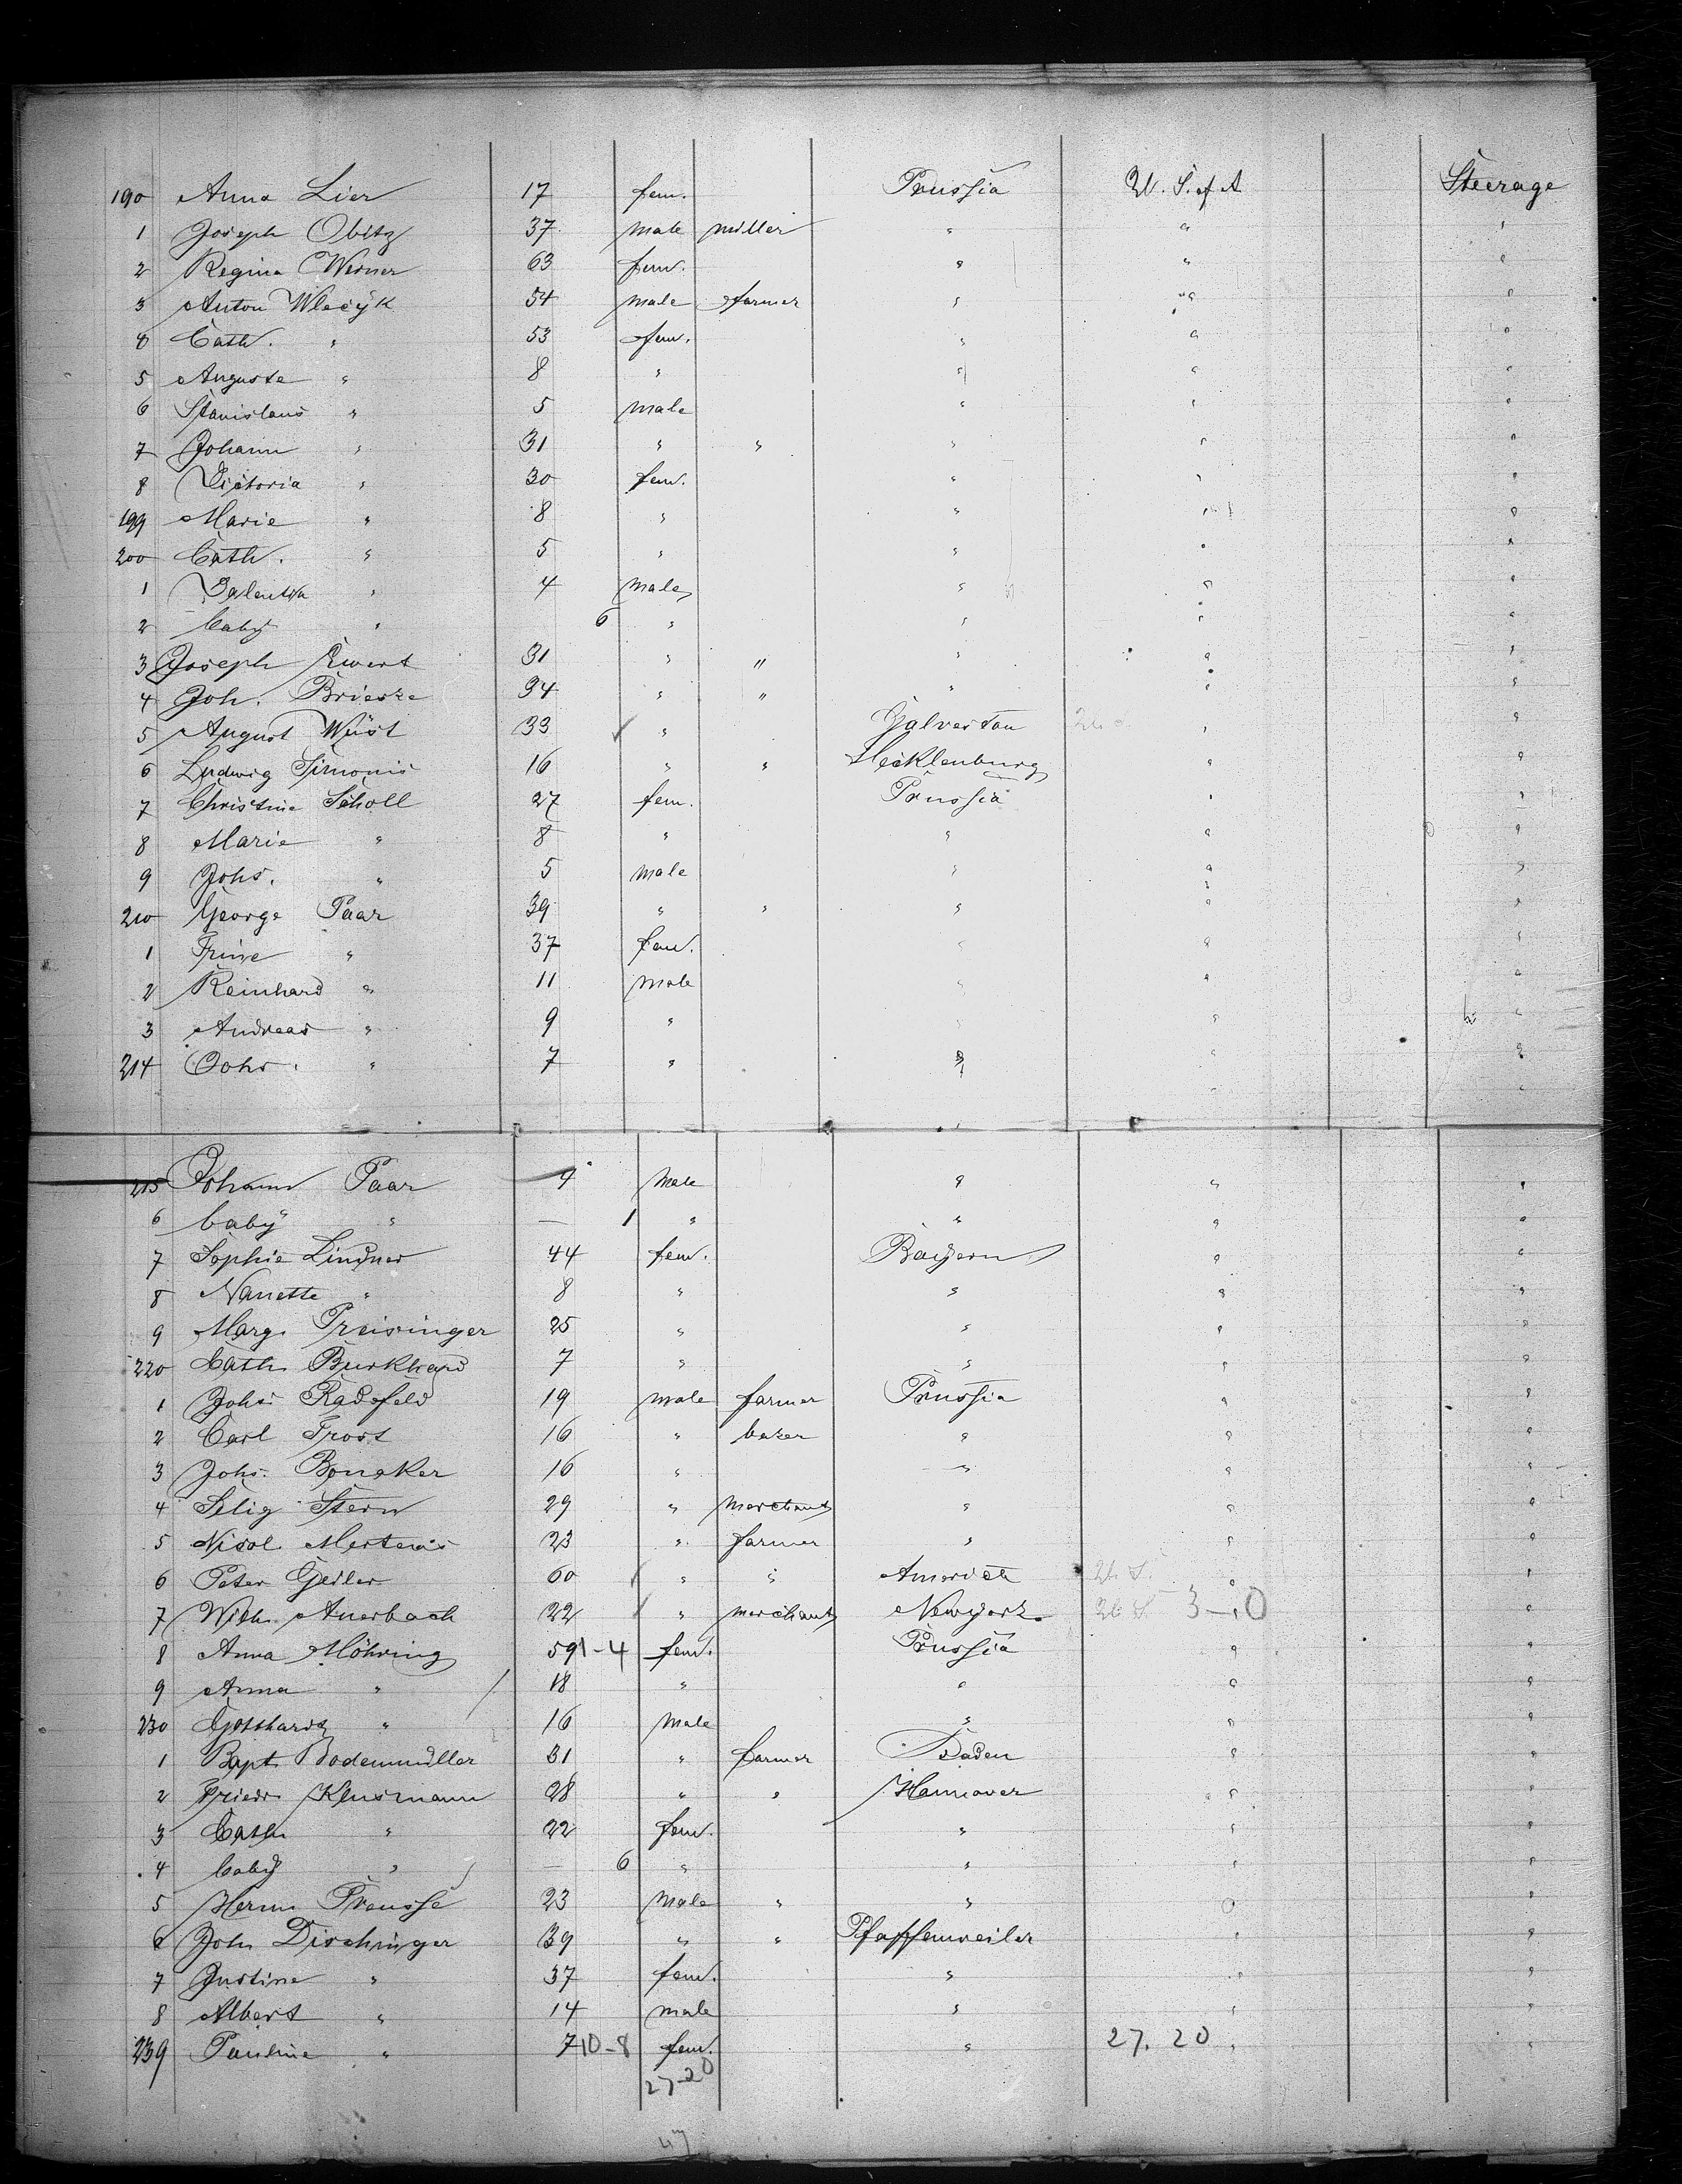 190 Anna Lier 17 fem. Prussia U. S. of A Steerage
1 Joseph Obitz 37 male miller " " "
2 Regina Werner 63 fem. " " "
3 Anton Wlecyk 54 male farmer " " "
4 Cath. " 53 fem. " " "
5 Auguste " 8 " " " "
6 Stanislaus " 5 male " " "
7 Johann " 31 " " " " "
8 Victoria " 30 fem. " " "
199 Marie " 8 " " " "
200 Cath. " 5 " " " "
1 Valentin " 4 male " " "
2 baby " 6 " " " "
3 Joseph Ewert 31 " " " " "
4 Joh. Brieske 34 " " " " "
5 August Wüst 33 " Galveston " "
6 Ludwig Simonis 16 " " Mecklenburg " "
7 Christine Scholl 27 fem. Prussia " "
8 Marie " 8 " " " "
9 Johs. " 5 male " " "
210 George Paar 39 " " " " "
1 Trine " 37 fem. " " "
2 Reinhard " 11 male " " "
3 Andreas " 9 " " " "
214 Johs. " 7 " " " "
215 Johann Paar 4 male " " "
6 baby " — 1 " " " "
7 Sophie Lindner 44 fem. Bayern " "
8 Nanette " 8 " " " "
9 Marg. Preisinger 25 " " " "
220 Cath. Burkhard 7 " " " "
1 Johs. Radefeld 19 male farmer Prussia " "
2 Carl Frost 16 " baker " " "
3 Johs. Boneker 16 " " " "
4 Selig Stern 29 " merchant " " "
5 Nicol. Mertens 23 " farmer " " "
6 Peter Geiler 60 " " America " "
7 Wilh. Auerbach 22 " merchant Newyork 3-10 "
8 Anna Möhring 59 1-4 fem. Prussia " "
9 Anna " 18 " " " "
230 Gotthard " 16 male " " "
1 Bapt. Bodenmüller 31 " farmer Baden " "
2 Friedr. Klusmann 28 " " Hannover " "
3 Cath. " 22 fem. " " "
4 baby " — 6 " " " "
5 Herm. Preusse 23 male " " " "
6 John Dischinger 39 " " Pfaffenweiler " "
7 Justine " 37 fem. " " "
8 Albert " 14 male " " "
239 Pauline " 7 10-8 fem. " 27.20 " "
27-20